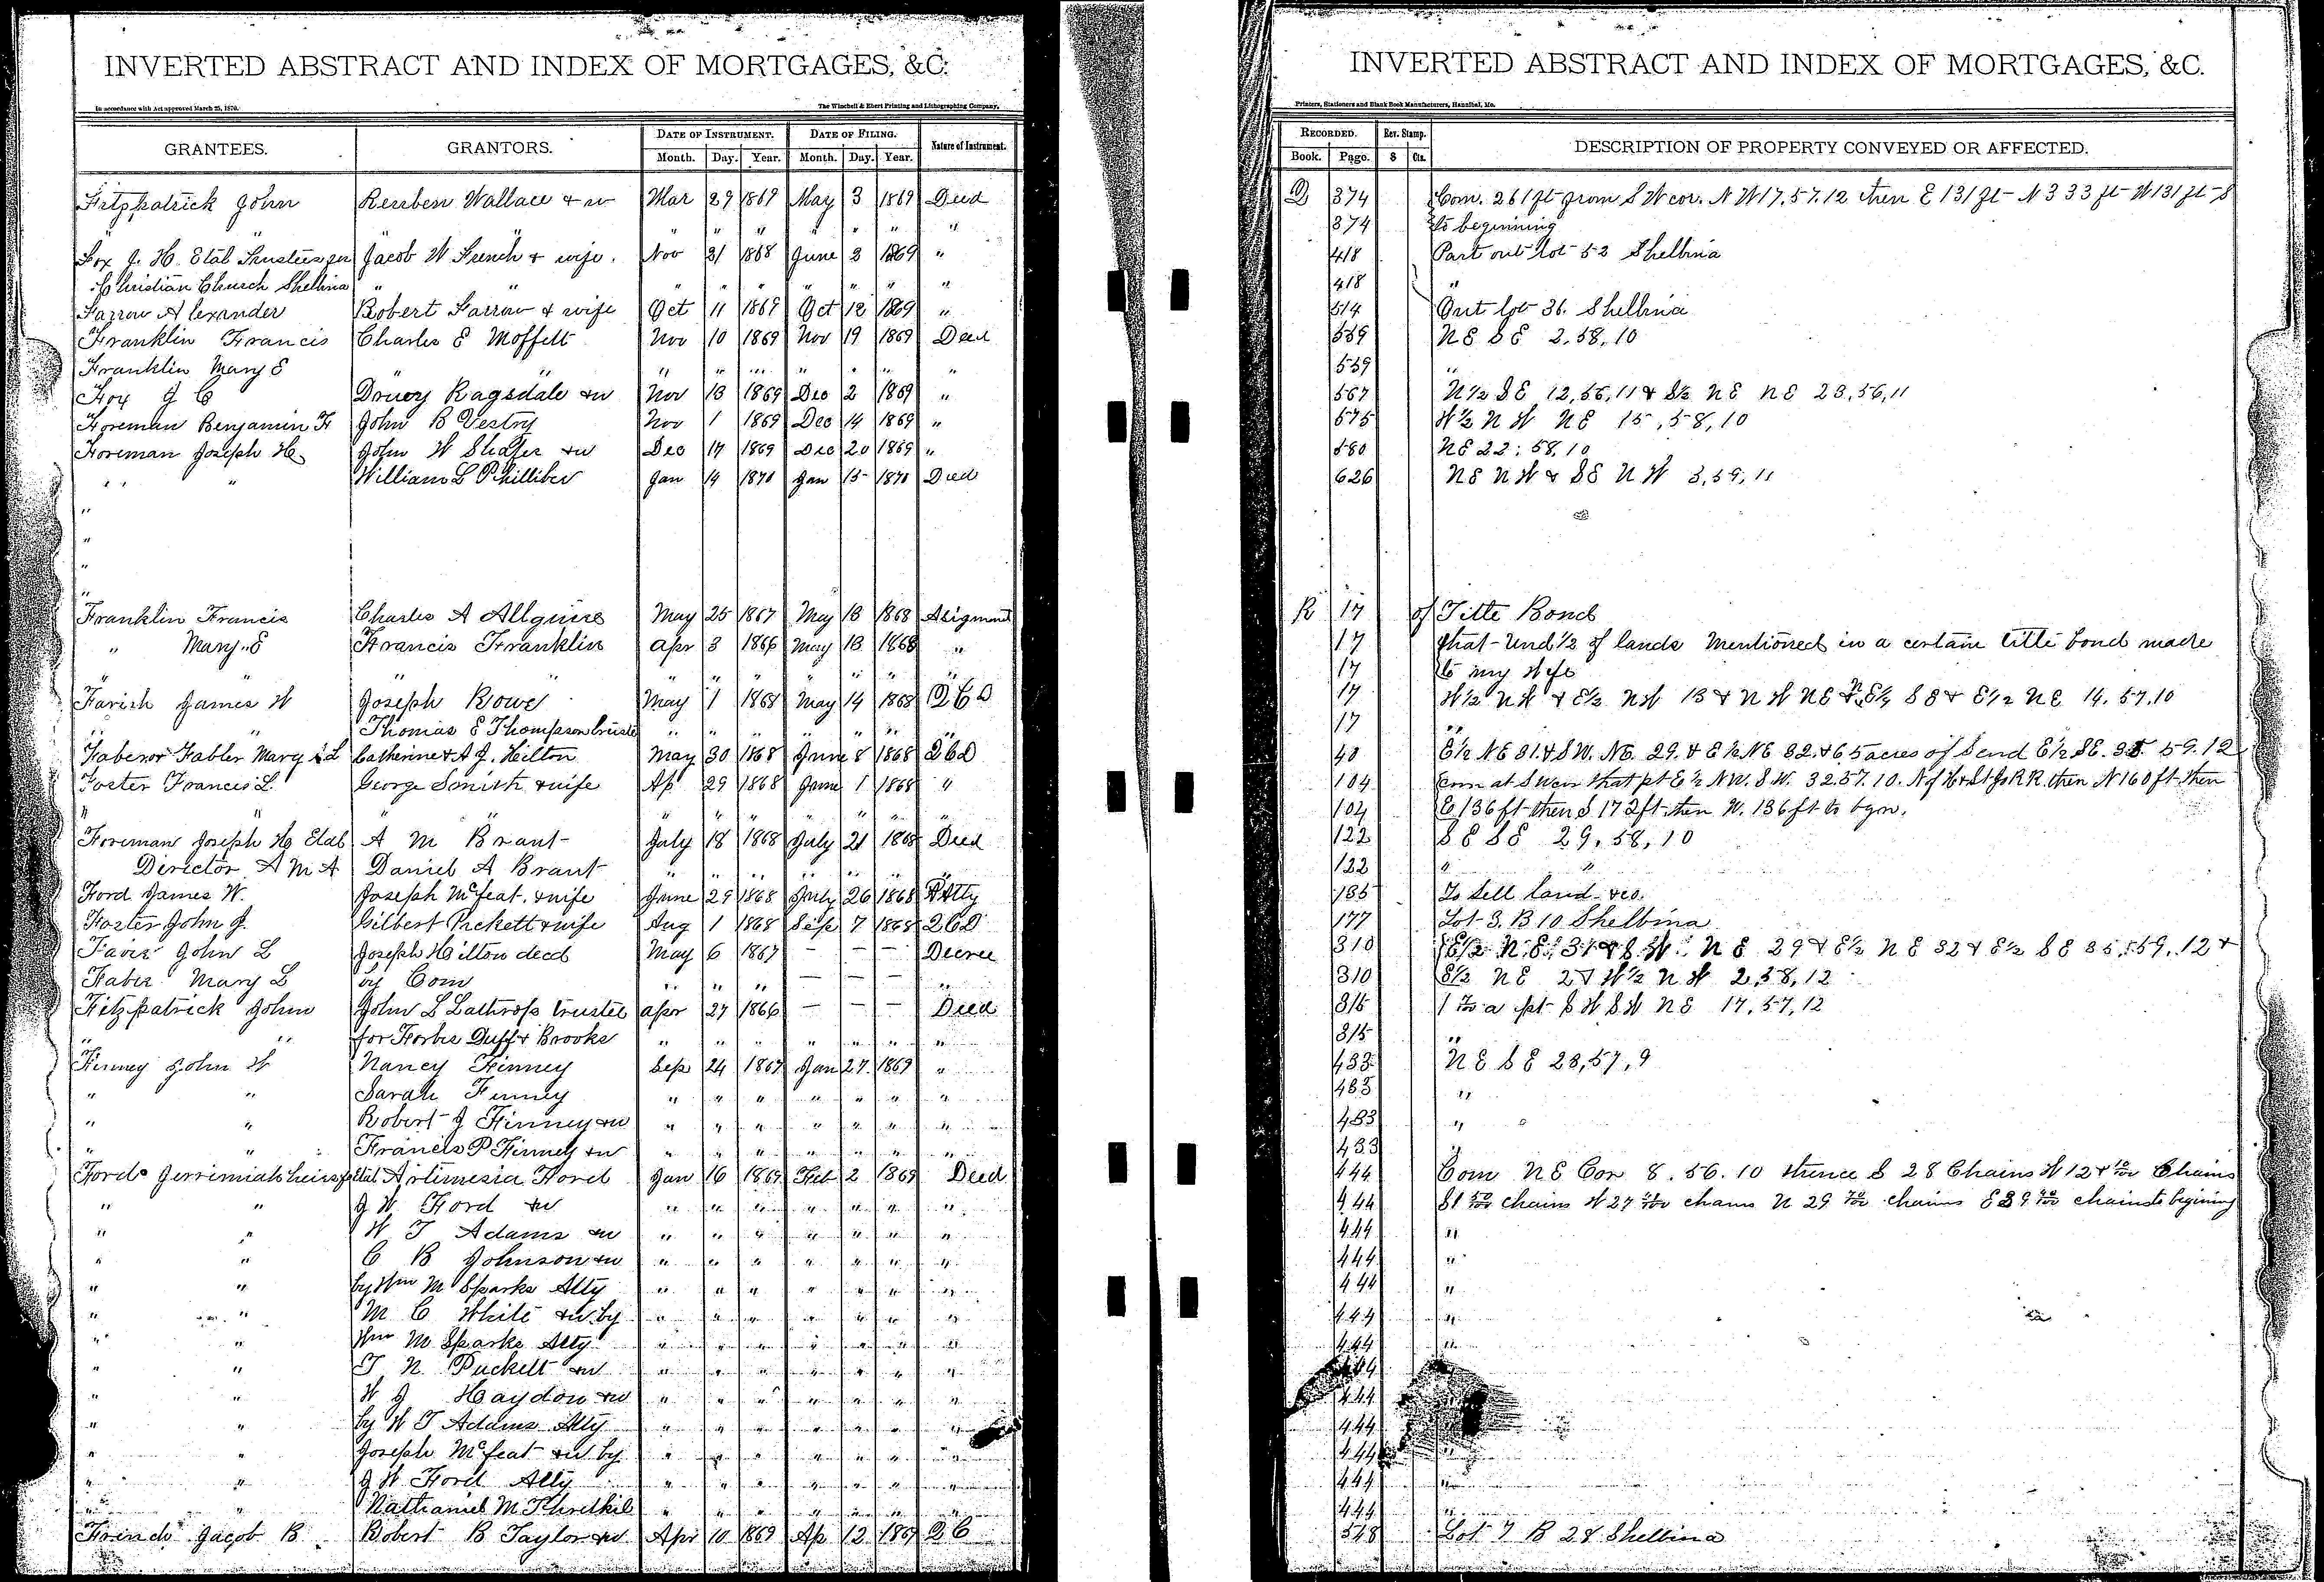 INVERTED ABSTRACT AND INDEX OF MORTGAGES, &C.
In accordance with Act approved March 25, 1870.
The Winchell & Ebert Printing and Lithographing Company,
GRANTEES. GRANTORS. DATE OF INSTRUMENT. DATE OF FILING. Nature of Instrument.
Month. Day. Year. Month. Day. Year.
Fitzpatrick John Reuben Wallace & w Mar 29 1869 May 3 1869 Deed
" " " " " " "
Fox J. H. Etal Trustees for Jacob W French & wife. Nov 21 1868 June 3 1869 "
Christian Church Shelbina " " " " " " " " "
Farrow Alexander Robert Farrow & wife Oct 11 1869 Oct 12 1869 "
Franklin Francis Charles E Moffett Nov 10 1869 Nov 19 1869 Deed
Franklin Mary E " " " " " " "
Foy J C Drury Ragsdale &w Nov 13 1869 Dec 2 1869 "
Foreman Benjamin F John B Vestry Nov 1 1869 Dec 14 1869 "
Foreman Joseph H John W Shafer &w Dec 17 1869 Dec 20 1869 "
" " William L Philliber Jan 14 1870 Jan 15 1870 Deed
"
"
"
"
Franklin Francis Charles A Allguire May 25 1867 May 13 1868 Asigment
" Mary E Francis Franklin Apr 3 1866 May 13 1868 "
" " " " " " " "
Farich James W Joseph Rowe May 1 1868 May 14 1868 Q C D
" " Thomas E Thompson trustee " " " " " " "
Faber or Fabler Mary L Catherine & A J. Hilton May 30 1868 June 8 1868 Q C D
Foster Frances L. George Smith & wife Ap 29 1868 June 1 1868 "
" " " " " " " " "
Foreman Joseph H Etal A M Brant July 18 1868 July 21 1868 Deed
Director A M A Daniel A Brant " " " " " " "
Ford James W. Joseph McFeat. & wife June 29 1868 July 26 1868 P Atty
Foster John J. Gilbert Pickett & wife Aug 1 1868 Sep 7 1868 Q C D
Faver John L Joseph Hilton decd May 6 1867 — — — Decree
Faber Mary L by Com " " " — — — "
Fitzpatrick John John L Lathrop trustee Apr 27 1866 — — — Deed
" " for Forbes Duff & Brooks " " " " " " "
Finney John W Nancy Finney Sep 24 1867 Jan 27 1869 "
" " Sarah Finney " " " " " " "
" " Robert J Finney &w " " " " " " "
" " Francis P Finney &w " " " " " " "
Ford Jerrimiah heirs Etal Artimesia Ford Jan 16 1869 Feb 2 1869 Deed
" " J W Ford &w " " " " " " "
" " W T Adams &w " " " " " " "
" " C B Johnson &w " " " " " " "
" " by Wm M Sparks Atty " " " " " " "
" " M C White &w by " " " " " " "
" " Wm M Sparks Atty " " " " " " "
" " T N Puckett &w " " " " " " "
" " W J Haydon &w " " " " " " "
" " by W T Adams Atty " " " " " " "
" " Joseph McFeat &w by " " " " " " "
" " J W Ford Atty " " " " " " "
" " Nathaniel M Threlkil " " " " " " "
French Jacob B Robert B Taylor &w Apr 10 1869 Ap 12 1869 Q C
INVERTED ABSTRACT AND INDEX OF MORTGAGES, &C.
Printers, Stationers and Blank Book Manufacturers, Hannibal, Mo.
RECORDED. Rev. Stamp. DESCRIPTION OF PROPERTY CONVEYED OR AFFECTED.
Book. Page. $ Cts.
Q 374 Com. 261 ft from S W cor. N W 17.57.12 then E 131 ft N 333 ft W 131 ft S
374 to beginning
418 Part out lot 52 Shelbina
418 "
514 Out lot 36. Shelbina
539 N E S E 2.58.10
539 "
567 N½ S E 12,56,11 & S½ N E N E 23,56,11
575 W½ N W N E 15,58,10
580 N E 22, 58,10
626 N E N W & S E N W 3,59,11
R 17 of Title Bond
17 that Und ½ of lands Mentioned in a certain title bond made
17 to my Wife
17 W½ N W & E½ N W 13 & N W N E & E½ S E & E½ N E 14.57.10
17 "
40 E½ N E 31. & S W. N E. 29. & E½ N E 32. & 65 acres of S end E½ S E. 35. 59.12
104 Com at S W cor that pt E½ N W. S W. 32.57.10. N of H & St Jo R R. then N 160 ft then
104 E 136 ft then S 172 ft then W. 136 ft to bgin.
122 S E S E 29,58,10
122 " "
135 To Sell Land &c.
177 Lot 3. B 10 Shelbina
310 E½ N E 31 & S W N E 29 & E½ N E 32 & E½ S E 35,59,12 &
310 E½ N E 2 & W½ N W 2,58,12
315 a pt S W S W N E 17,57,12
315 "
433 N E S E 23,57,9
433 "
433 "
433 "
444 Com N E Cor 8.56.10 thence S 28 Chains W 12 Chains
444 chains W 27 chains N 29 chains E 39 chains to begining
444 "
444 "
444 "
444 "
444 "
444
444
444
444
444 "
444 "
528 Lot 7 B 28 Shelbina